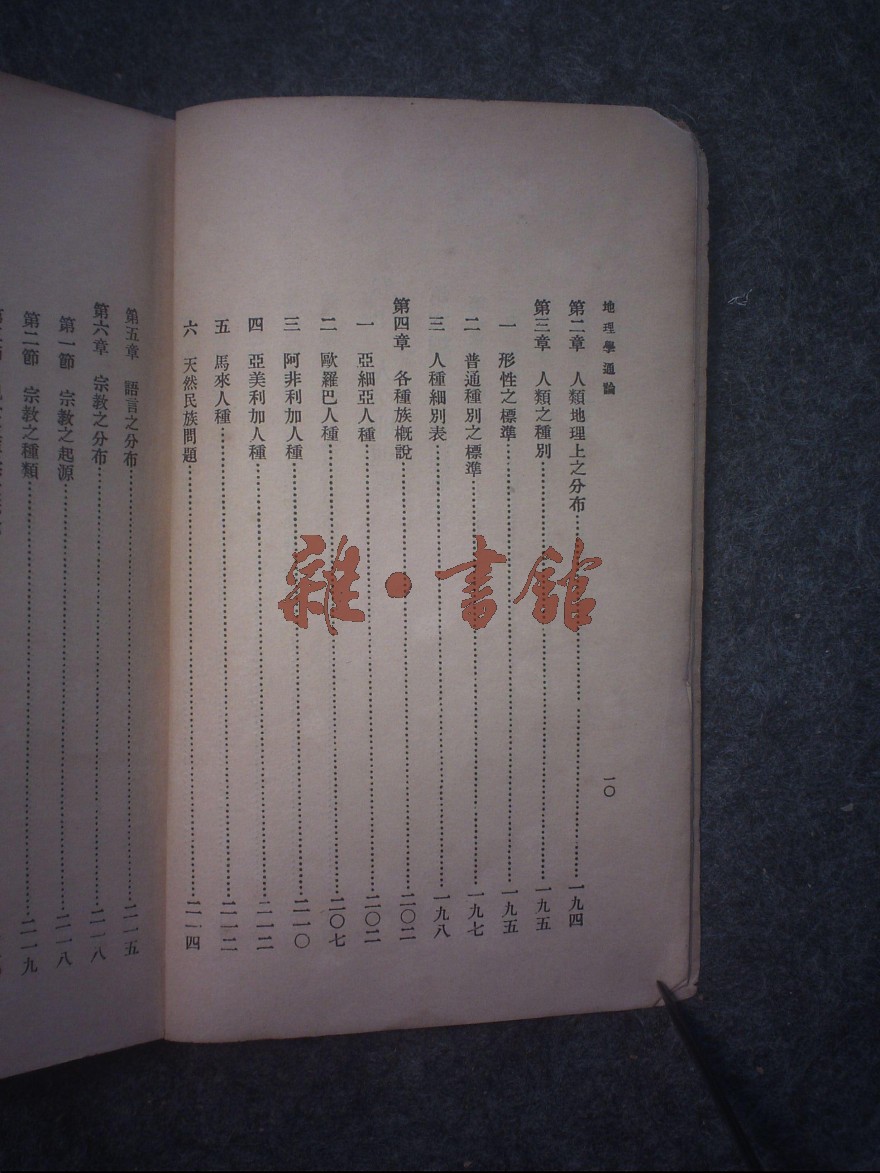 地理學通論
一〇
第二章 人類地理上之分布……一九四
第三章 人類之種別……一九五
一 形性之標準……一九五
二 普通種別之標準……一九七
三 人種細別表……一九八
第四章 各種族概說……二〇二
一 亞細亞人種……二〇二
二 歐羅巴人種……二〇七
三 阿非利加人種……二一〇
四 亞美利加人種……二一二
五 馬來人種……二一二
六 天然民族問題……二一四
第五章 語言之分布……二一五
第六章 宗教之分布……二一八
第一節 宗教之起源……二一八
第二節 宗教之種類……二一九
雜·書館